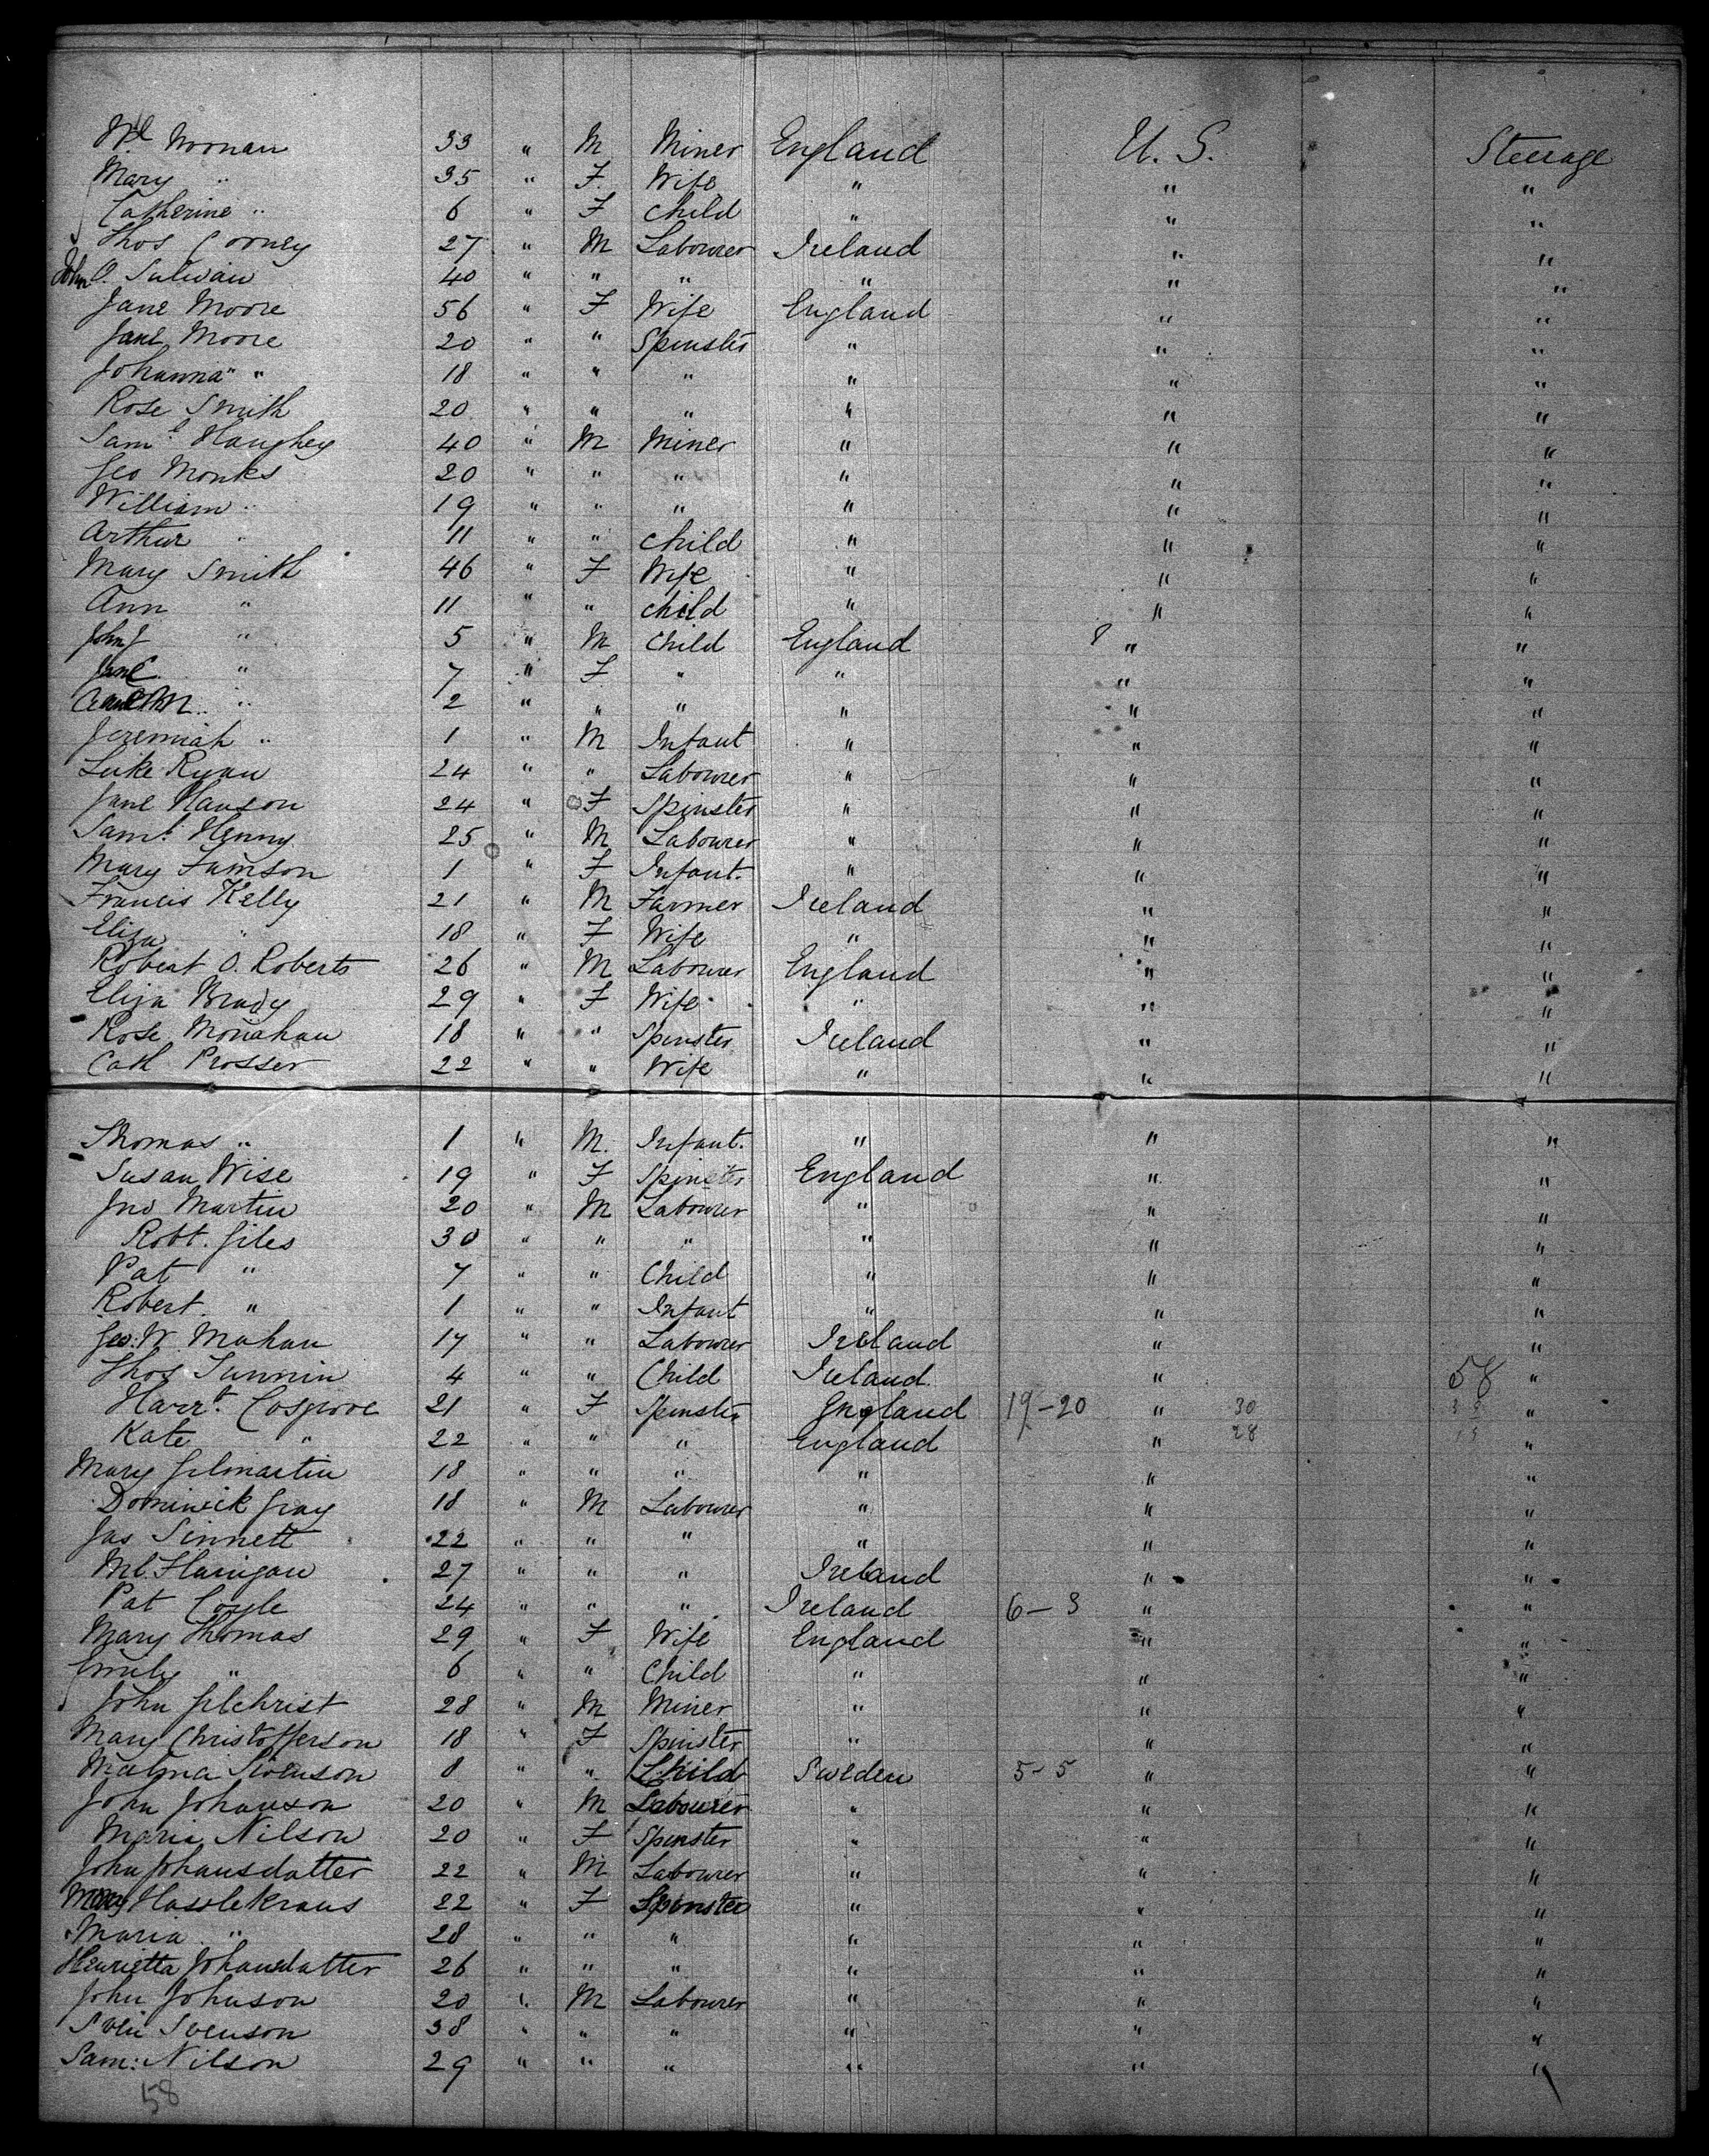 Wl Noonan 33 " M Miner England U. S. Steerage
Mary " 35 " F. Wife " " "
Catherine " 6 " F Child " " "
Thos Cooney 27 " M Labourer Ireland " "
John O. Sulivan 40 " " " " " "
Jane Moore 56 " F Wife England " "
Jane Moore 20 " " Spinster " " "
Johanna " " 18 " " " " " "
Rose Smith 20 " " " " " "
Saml Haughey 40 " M Miner " " "
Geo Monks 20 " " " " " "
William " 19 " " " " " "
Arthur " 11 " " Child " " "
Mary Smith 46 " F Wife " " "
Ann " 11 " " Child " " "
John J " 5 " M Child England " "
Jane " 7 " F " " " "
" 2 " " " " " "
Jeremiah " 1 " M Infant " " "
Luke Ryan 24 " " Labourer " " "
Jane Hanson 24 " F Spinster " " "
Saml Henny 25 " M Labourer " " "
Mary 1 " F Infant. " " "
Francis Kelly 21 " M Farmer Ireland " "
Eliza " 18 " F Wife " " "
Robert O. Roberts 26 " M Labourer England " "
Eliza Brady 29 " F Wife " " "
Rose Monahan 18 " " Spinster Ireland " "
Cath Prosser 22 " " Wife " " "
Thomas " 1 " M. Infant. " " "
Susan Wise 19 " F Spinster England " "
Jno Martin 20 " M Labourer " " "
Robt. Giles 30 " " " " " "
Pat " 7 " " Child " " "
Robert " 1 " " Infant " " "
Geo: W. Mahan 17 " " Labourer Ireland " "
Thos Tunnin 4 " " Child Ireland " 58 "
Harrt. Cosgrove 21 " F Spinster England 19-20 " 30 "
Kate " 22 " " " England " 28 "
Mary Gilmartin 18 " " " " " "
Dominick Gray 18 " M Labourer " " "
Jas Sinnett 22 " " " " " "
Ml. Flanigan 27 " " " Ireland " "
Pat Coyle 24 " " " Ireland 6-3 " "
Mary Thomas 29 " F Wife England " "
Emily " 6 " " Child " " "
John Gilchrist 28 " M Miner " " "
Mary Christofferson 18 " F Spinster " " "
Malina Swenson 8 " " Child Sweden 5-5 " "
John Johanson 20 " M Labourer " " "
Maria Nilson 20 " F Spinster " " "
John Johansdatter 22 " M Labourer " " "
Mary Hasslekraus 22 " F Spinster " " "
Maria " 28 " " " " " "
Henrietta Johansdatter 26 " " " " " "
John Johnson 20 " M Labourer " " "
Sven Svenson 38 " " " " " "
Sam: Nilson 29 " " " " " "
58